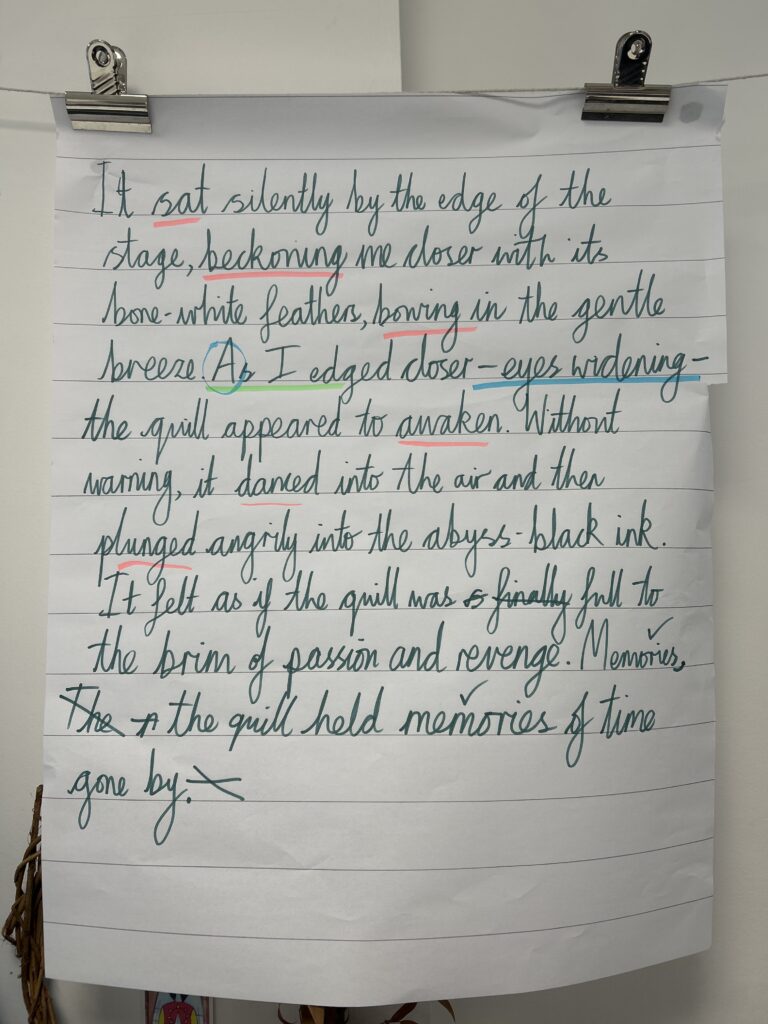 It sat silently by the edge of the
stage, beckoning me closer with its
bone-white feathers, bowing in the gentle
breeze. As I edged closer - eyes widening -
the quill appeared to awaken. Without
warning, it danced into the air and then
plunged angrily into the abyss-black ink.
It felt as if the quill was finally full to
the brim of passion and revenge. Memories,
The the quill held memories of time
gone by.